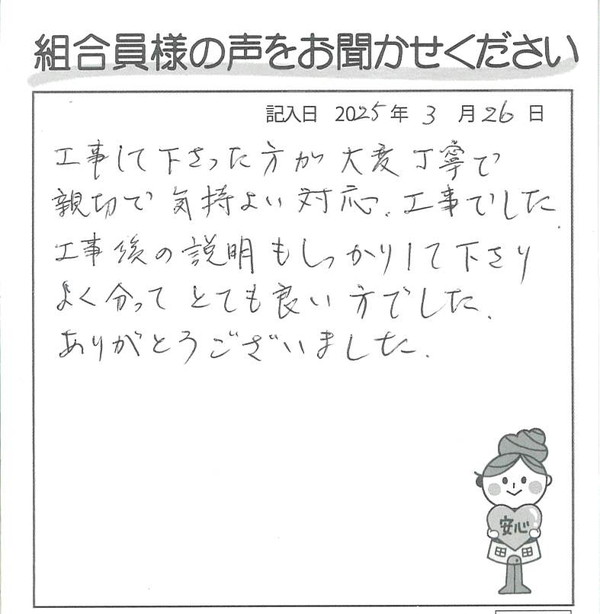 組合員様の声をお聞かせください
記入日 2025年 3月 26日
工事して下さった方が大変丁寧で
親切で気持よい対応、工事でした
工事後の説明もしっかりして下さり
よく分ってとても良い方でした。
ありがとうございました。
安心